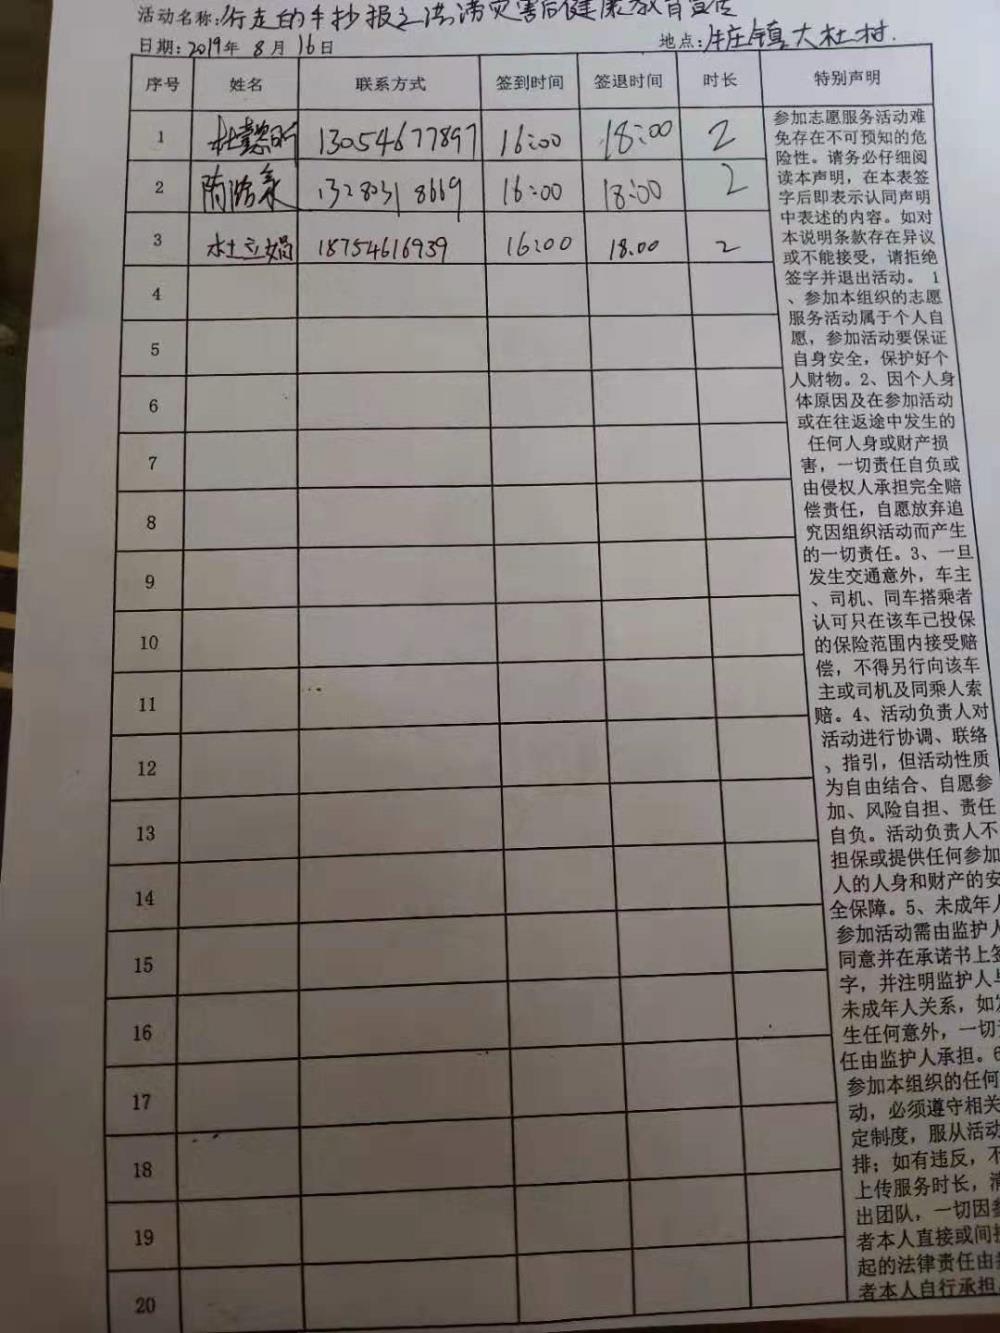 活动名称:行走的手抄报之洪涝灾害后健康教育宣传
日期:2019年 8月 16日 地点:牛庄镇大杜村.
序号 姓名 联系方式 签到时间 签退时间 时长 特别声明
1 杜懿昕 13054677897 16:00 18:00 2
2 陈浩 13280318669 16:00 18:00 2
3 杜立娟 18754616939 16:00 18.00 2
4
5
6
7
8
9
10
11
12
13
14
15
16
17
18
19
20
参加志愿服务活动难
免存在不可预知的危
险性。请务必仔细阅
读本声明，在本表签
字后即表示认同声明
中表述的内容。如对
本说明条款存在异议
或不能接受，请拒绝
签字并退出活动。 1
、参加本组织的志愿
服务活动属于个人自
愿，参加活动要保证
自身安全，保护好个
人财物。2、因个人身
体原因及在参加活动
或在往返途中发生的
任何人身或财产损
害，一切责任自负或
由侵权人承担完全赔
偿责任，自愿放弃追
究因组织活动而产生
的一切责任。3、一旦
发生交通意外，车主
、司机、同车搭乘者
认可只在该车已投保
的保险范围内接受赔
偿，不得另行向该车
主或司机及同乘人索
赔。4、活动负责人对
活动进行协调、联络
、指引，但活动性质
为自由结合、自愿参
加、风险自担、责任
自负。活动负责人不
担保或提供任何参加
人的人身和财产的安
全保障。5、未成年人
参加活动需由监护人
同意并在承诺书上签
字，并注明监护人与
未成年人关系，如发
生任何意外，一切责
任由监护人承担。6
参加本组织的任何
动，必须遵守相关
定制度，服从活动
排；如有违反，不
上传服务时长，清
出团队，一切因参
者本人直接或间接
起的法律责任由参
者本人自行承担